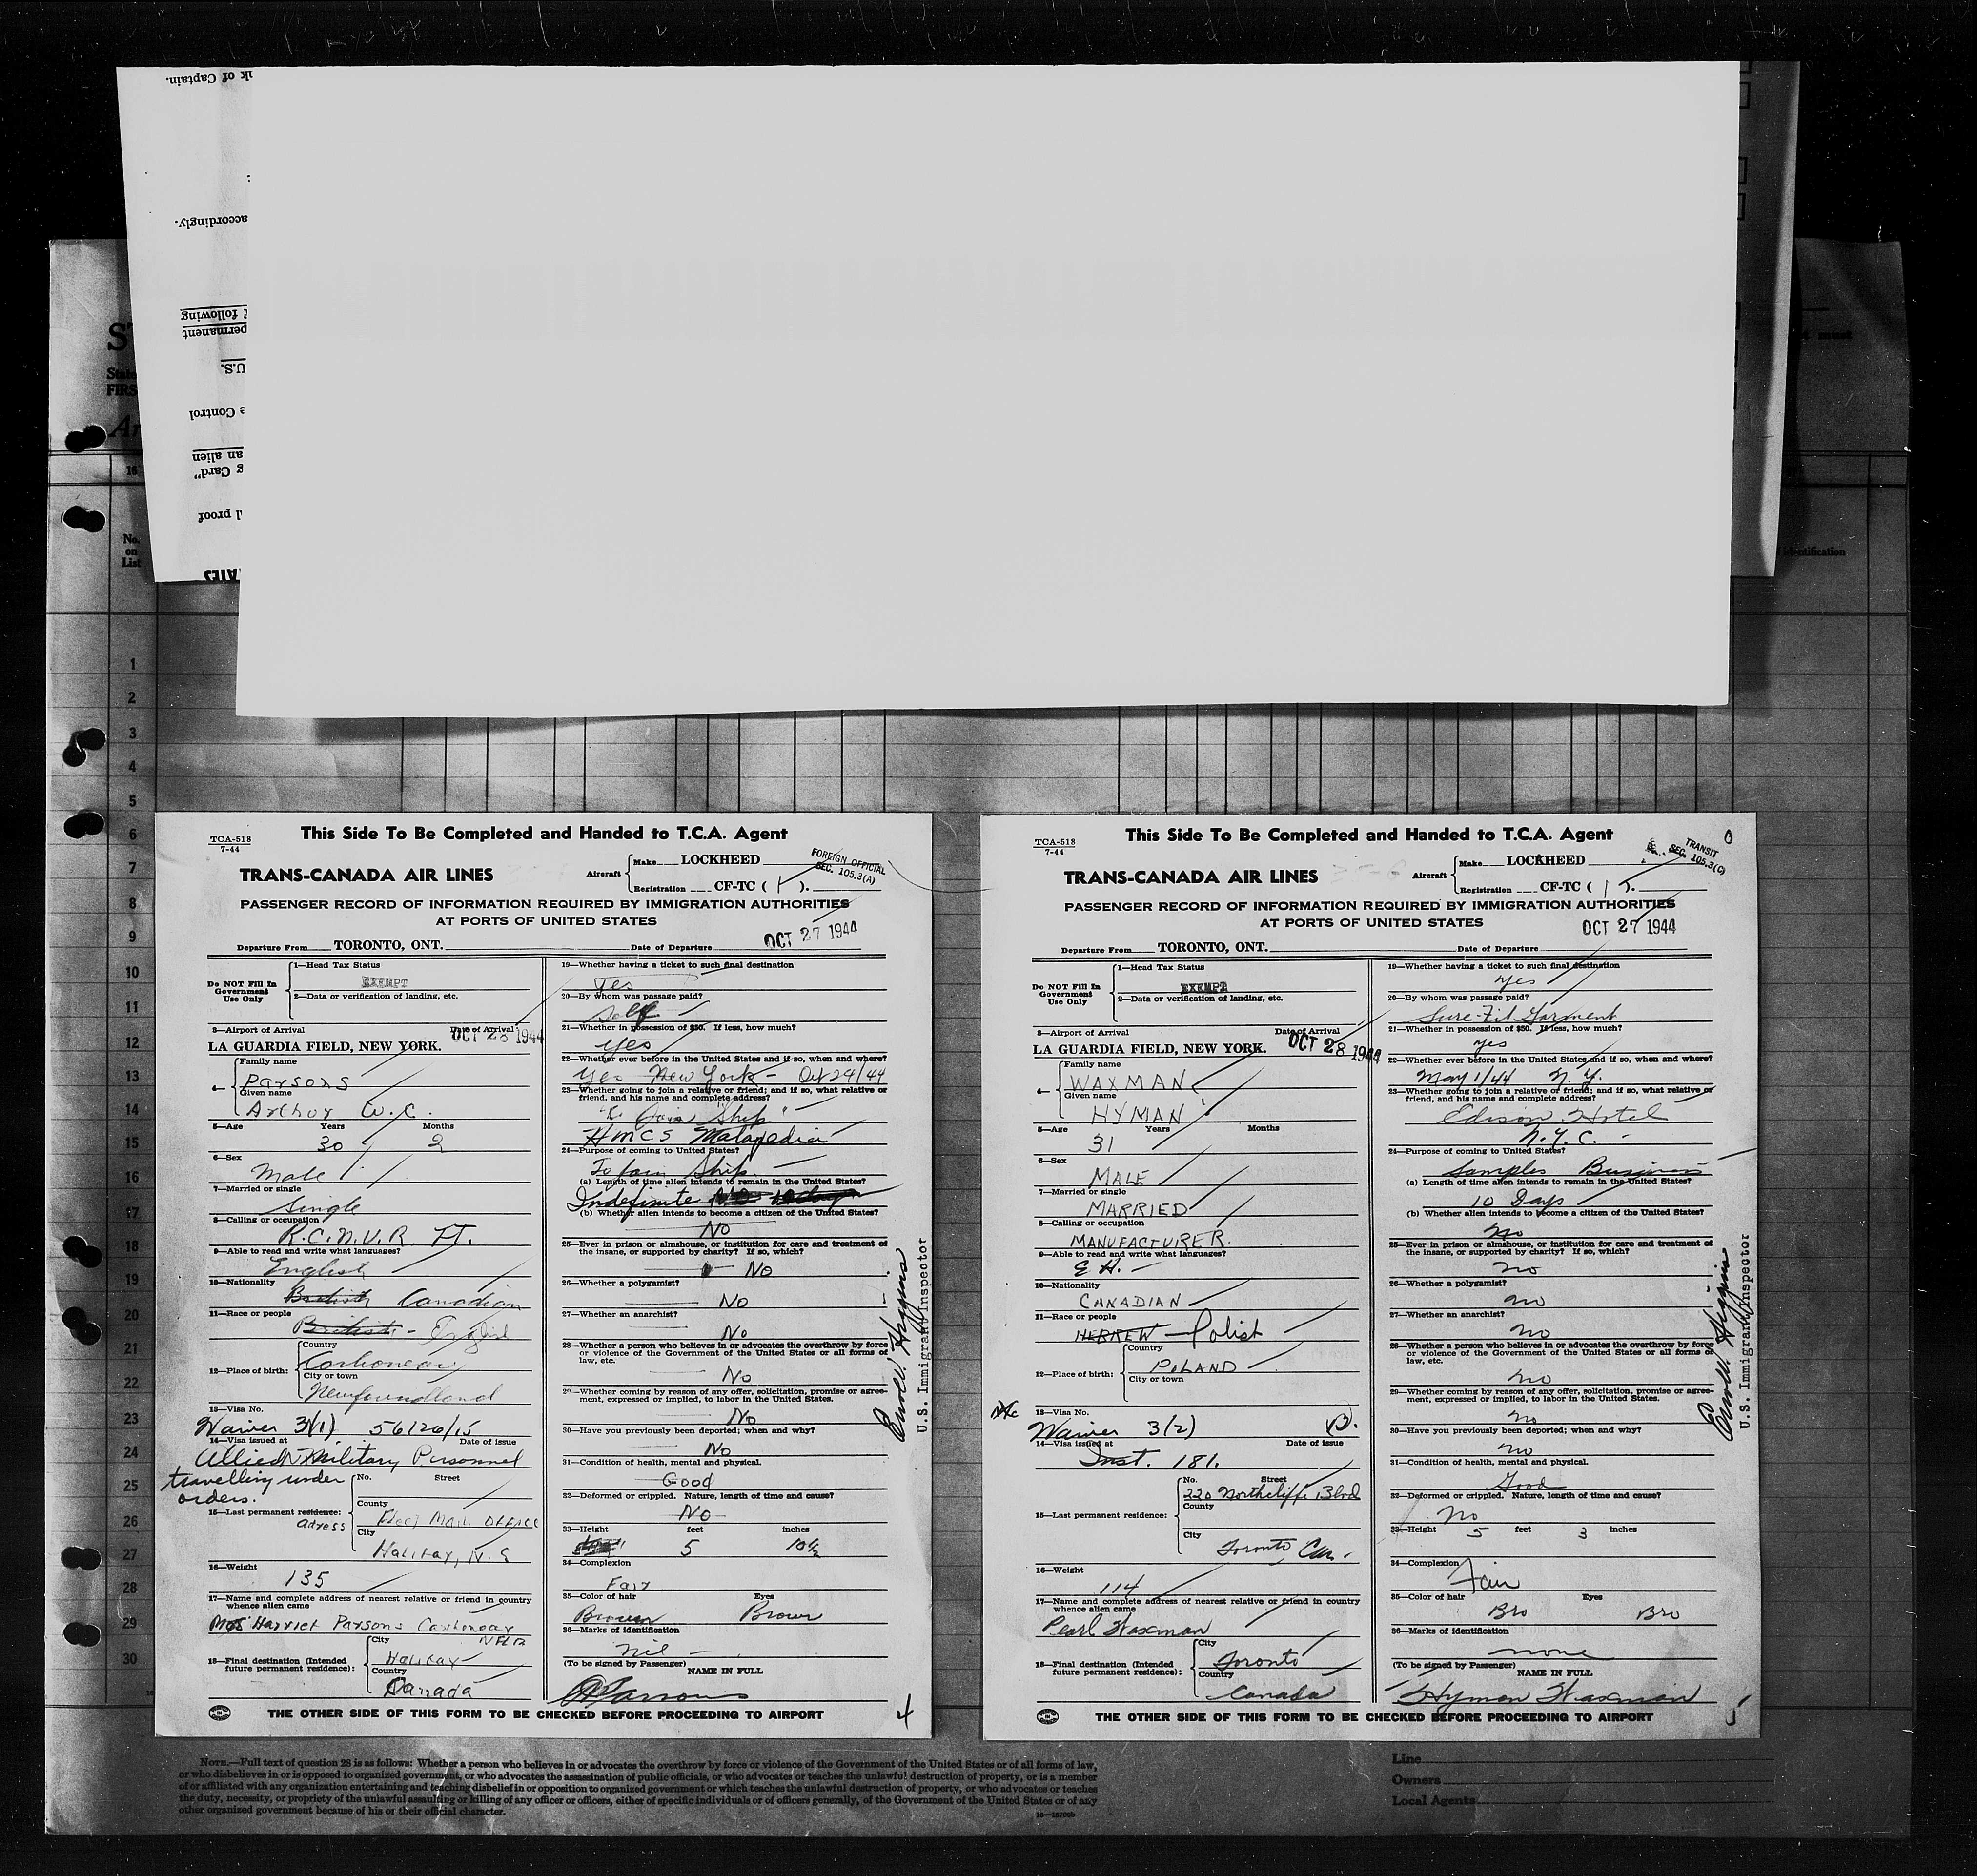 k of Captain.
accordingly.
following
permanent
U.S.
e Control
an alien
g Card"
l proof
ATES
No.
on
List
identification
1
2
3
4
5
6
7
8
9
10
11
12
13
14
15
16
17
18
19
20
21
22
23
24
25
26
27
28
29
30
TCA-518
7-44
This Side To Be Completed and Handed to T.C.A. Agent
TRANS-CANADA AIR LINES
Aircraft
Make LOCKHEED
Registration CF-TC ( ).
FOREIGN OFFICIAL
SEC. 105.3(A)
PASSENGER RECORD OF INFORMATION REQUIRED BY IMMIGRATION AUTHORITIES
AT PORTS OF UNITED STATES
OCT 27 1944
Departure From TORONTO, ONT. Date of Departure
Do NOT Fill In
Government
Use Only
1—Head Tax Status
EXEMPT
2—Data or verification of landing, etc.
3—Airport of Arrival Date of Arrival
LA GUARDIA FIELD, NEW YORK. OCT 28 1944
4—
Family name
Parsons
Given name
Arthur W.C.
5—Age Years Months
30 2
6—Sex
Male
7—Married or single
Single
8—Calling or occupation
R.C.N.V.R. Lt.
9—Able to read and write what languages?
English
10—Nationality
British Canadian
11—Race or people
British - English
12—Place of birth:
Country
Carbonear
City or town
Newfoundland
13—Visa No.
Waiver 3(1) 56126/15
14—Visa issued at Date of issue
Allied Military Personnel
travelling under
orders.
No. Street
County
15—Last permanent residence:
Adress
Fleet Mail Office
City
Halifax, N.S
16—Weight
135
17—Name and complete address of nearest relative or friend in country
whence alien came
Mrs Harriet Parsons Carbonear
NFLD
18—Final destination (Intended
future permanent residence):
City
Halifax
Country
Canada
19—Whether having a ticket to such final destination
Yes
20—By whom was passage paid?
Self
21—Whether in possession of $50. If less, how much?
Yes
22—Whether ever before in the United States and if so, when and where?
Yes New York - Oct 24/44
23—Whether going to join a relative or friend; and if so, what relative or
friend, and his name and complete address?
To Join Ship
HMCS Matapedia
24—Purpose of coming to United States?
To Join Ship
(a) Length of time alien intends to remain in the United States?
Indefinite
(b) Whether alien intends to become a citizen of the United States?
No
25—Ever in prison or almshouse, or institution for care and treatment of
the insane, or supported by charity? If so, which?
No
26—Whether a polygamist?
No
27—Whether an anarchist?
No
28—Whether a person who believes in or advocates the overthrow by force
or violence of the Government of the United States or of all forms of
law, etc.
No
29—Whether coming by reason of any offer, solicitation, promise or agree-
ment, expressed or implied, to labor in the United States.
No
30—Have you previously been deported; when and why?
No
31—Condition of health, mental and physical.
Good
32—Deformed or crippled. Nature, length of time and cause?
No
33—Height feet inches
5 10½
34—Complexion
Fair
35—Color of hair Eyes
Brown Brown
36—Marks of identification
Nil
(To be signed by Passenger) NAME IN FULL
Parsons
U.S. Immigrant Inspector
THE OTHER SIDE OF THIS FORM TO BE CHECKED BEFORE PROCEEDING TO AIRPORT
4
TCA-518
7-44
This Side To Be Completed and Handed to T.C.A. Agent
TRANS-CANADA AIR LINES
Aircraft
Make LOCKHEED
Registration CF-TC ( ).
TRANSIT
SEC. 105.3(C)
PASSENGER RECORD OF INFORMATION REQUIRED BY IMMIGRATION AUTHORITIES
AT PORTS OF UNITED STATES
OCT 27 1944
Departure From TORONTO, ONT. Date of Departure
Do NOT Fill In
Government
Use Only
1—Head Tax Status
EXEMPT
2—Data or verification of landing, etc.
3—Airport of Arrival Date of Arrival
LA GUARDIA FIELD, NEW YORK. OCT 28 1944
4—
Family name
WAXMAN
Given name
HYMAN
5—Age Years Months
31
6—Sex
MALE
7—Married or single
MARRIED
8—Calling or occupation
MANUFACTURER.
9—Able to read and write what languages?
E H.
10—Nationality
CANADIAN
11—Race or people
HEBREW - Polish
12—Place of birth:
Country
POLAND
City or town
13—Visa No.
Waiver 3(2)
14—Visa issued at Date of issue
Inst. 181.
No. Street
220 Northcliffe Blvd
County
15—Last permanent residence:
City
Toronto Can.
16—Weight
114
17—Name and complete address of nearest relative or friend in country
whence alien came
Pearl Waxman
18—Final destination (Intended
future permanent residence):
City
Toronto
Country
Canada
19—Whether having a ticket to such final destination
yes
20—By whom was passage paid?
Sure-Fit Garment
21—Whether in possession of $50. If less, how much?
yes
22—Whether ever before in the United States and if so, when and where?
May 1/44 N.Y.
23—Whether going to join a relative or friend; and if so, what relative or
friend, and his name and complete address?
Edison Hotel
N.Y.C.
24—Purpose of coming to United States?
Samples Business
(a) Length of time alien intends to remain in the United States?
10 Days
(b) Whether alien intends to become a citizen of the United States?
No
25—Ever in prison or almshouse, or institution for care and treatment of
the insane, or supported by charity? If so, which?
no
26—Whether a polygamist?
no
27—Whether an anarchist?
no
28—Whether a person who believes in or advocates the overthrow by force
or violence of the Government of the United States or of all forms of
law, etc.
no
29—Whether coming by reason of any offer, solicitation, promise or agree-
ment, expressed or implied, to labor in the United States.
no
30—Have you previously been deported; when and why?
no
31—Condition of health, mental and physical.
Good
32—Deformed or crippled. Nature, length of time and cause?
No
33—Height feet inches
5 3
34—Complexion
Fair
35—Color of hair Eyes
Bro Bro
36—Marks of identification
none
(To be signed by Passenger) NAME IN FULL
Hyman Waxman
U.S. Immigrant Inspector
THE OTHER SIDE OF THIS FORM TO BE CHECKED BEFORE PROCEEDING TO AIRPORT
5
NOTE.—Full text of question 28 is as follows: Whether a person who believes in or advocates the overthrow by force or violence of the Government of the United States or of all forms of law,
or who disbelieves in or is opposed to organized government, or who advocates the assassination of public officials, or who advocates or teaches the unlawful destruction of property, or is a member
of or affiliated with any organization entertaining and teaching disbelief in or opposition to organized government or which teaches the unlawful destruction of property, or who advocates or teaches
the duty, necessity, or propriety of the unlawful assaulting or killing of any officer or officers, either of specific individuals or of officers generally, of the Government of the United States or of any
other organized government because of his or their official character.
Line
Owners
Local Agents